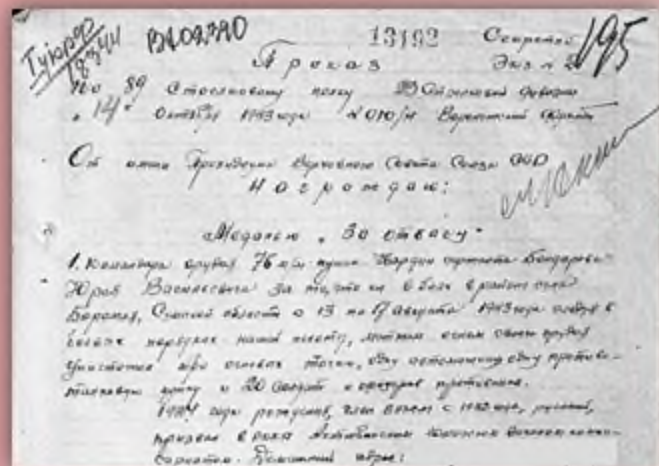 13192 Секретно
195
Приказ Экз № 2
По 89 стрелковому полку 23 стрелковой дивизии
"14" октября 1943 года № 010/н Воронежский фронт
От имени Президиума Верховного Совета Союза ССР
Награждаю:
Медалью "За отвагу"
1. Командира орудия 76 м/м пушки гвардии сержанта Бондарева
Юрия Васильевича за то, что он в боях в районе села
Боромля, Сумской области с 13 по 17 августа 1943 года следуя в
боевых порядках нашей пехоты, метким огнем своего орудия
уничтожил три огневых точки, одну автомашину одну противо-
танковую пушку и 20 солдат и офицеров противника.
1924 года рождения, член ВЛКСМ с года, русский,
призван в РККА Актюбинским военным комис-
сариатом. Домашний адрес: